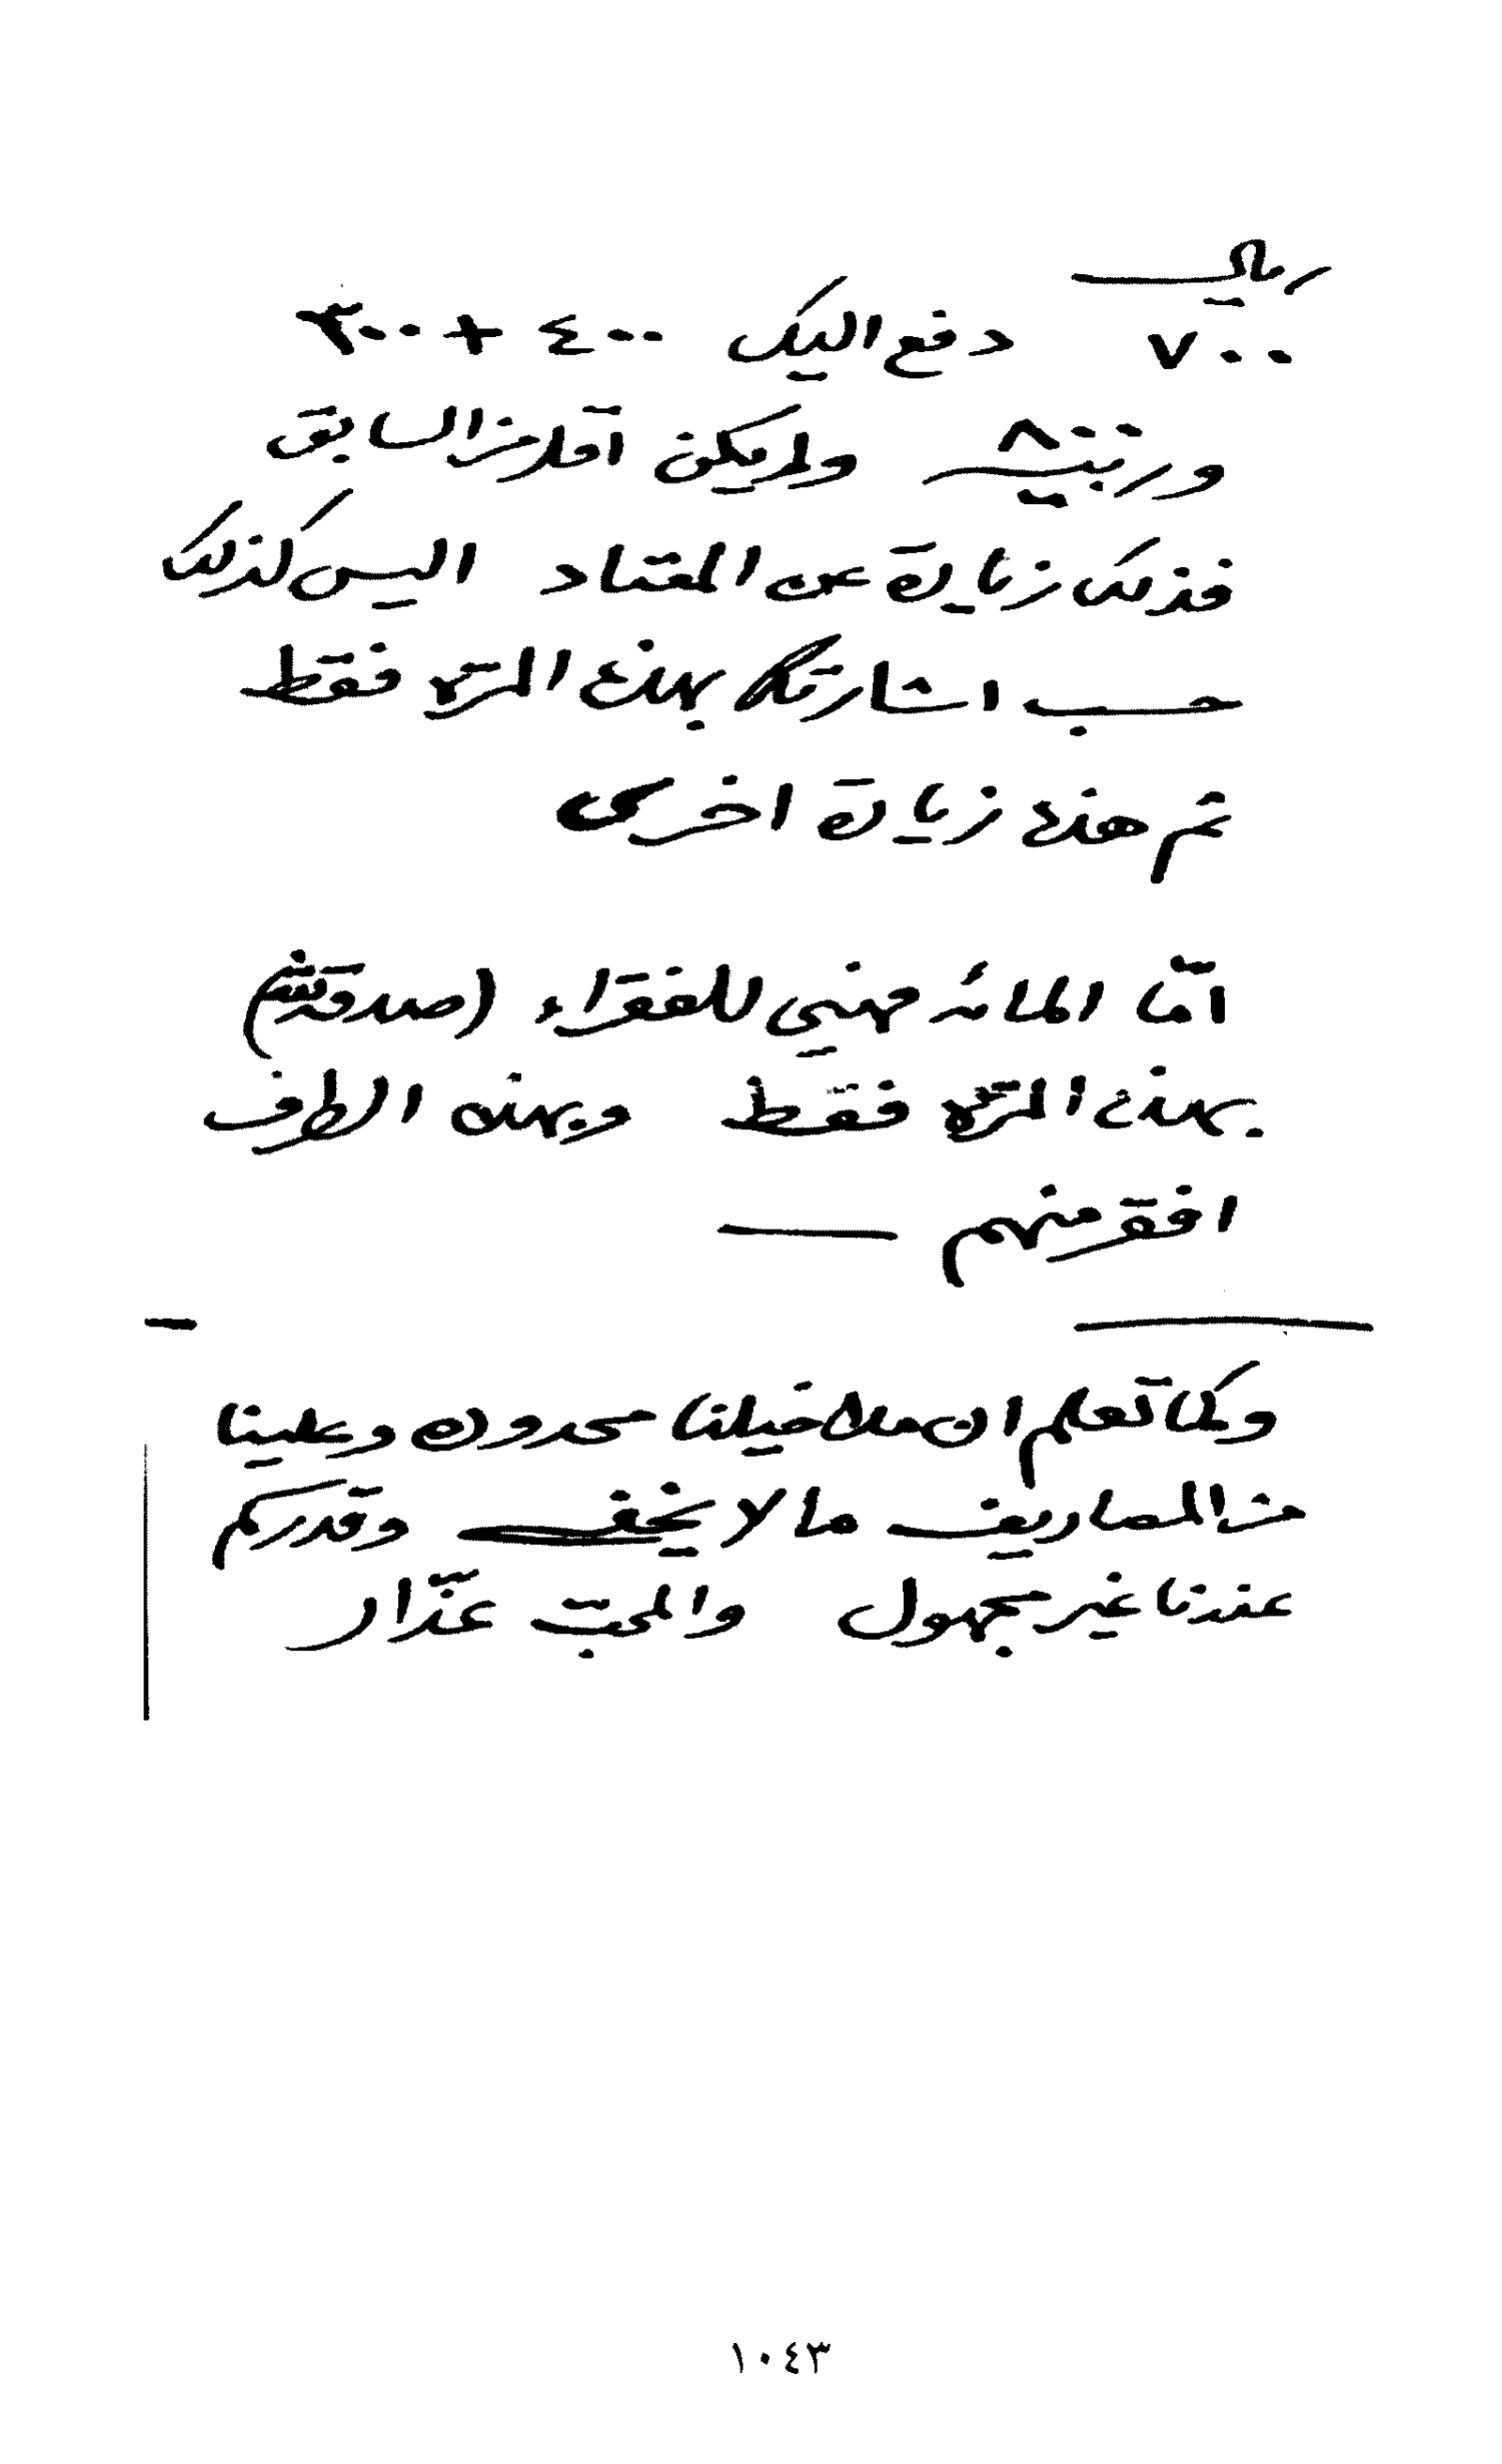 ريال
٧٠٠ دفع اليك ٤٠٠ + ٣٠٠
ورتبته ٨٠٠ ولم يكن اقل من السابق
فذلك زيادة عن المعتاد اليس كذلك
حسب اشارتك بهذه المرة فقط
ثم هذه زيادة اخرى
أمّا المائة فهي للفقراء (صدقة)
بهذه المرّة فقط وبهذه الطرف
افقر منهم
وكما تعلم ان مداخيلنا محدودة وعلينا
من المصاريف ما لا يخفى وقدركم
عندنا غير مجهول والمحبّ عذّار
١٠٤٣